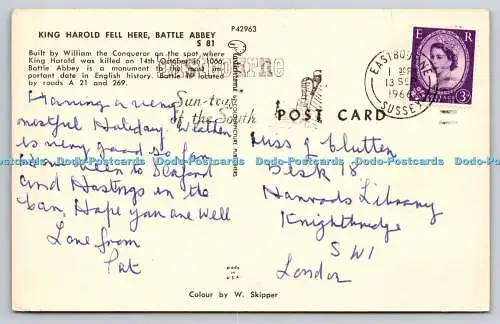 KING HAROLD FELL HERE, BATTLE ABBEY
S 81
Built by William the Conqueror on the spot where
King Harold was killed on 14th October, 1066,
Battle Abbey is a monument to the most im-
portant date in English history. Battle is located
by roads A 21 and 269.
P42963
Eastbourne
Sun-trap
of the South
EASTBOURNE
13 SE
196
SUSSEX
E R
3D
POST CARD
Having a very
restful Holiday. Weather
is very good so far
have been to Seaford
and Hastings in the
car, Hope you are Well
Love from
Pat
Miss J Clutten
Desk 18
Harrods Library
Knightbridge
SW1
London
MADE IN
U.S.A.
Colour by W. Skipper
Dodo-Postcards Dodo-Postcards Dodo-Postcards Dodo-Postcards